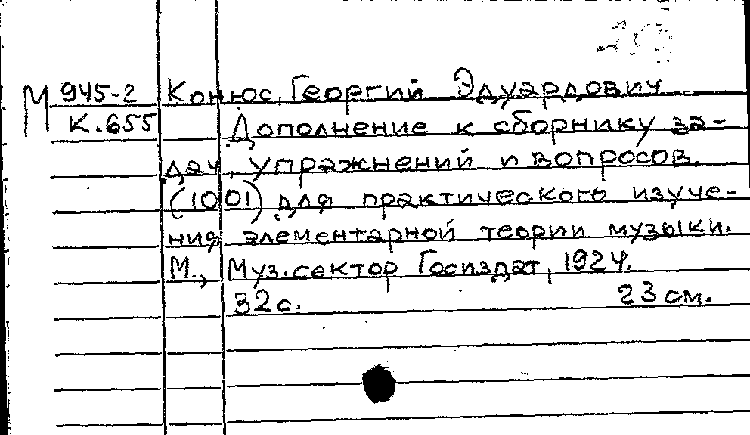 М 945-2 Конюс, Георгий Эдуардович
К.655 Дополнение к сборнику за-
дач, упражнений и вопросов
(1001) для практического изуче-
ния элементарной теории музыки.
М., Муз.сектор Госиздат, 1924.
32с. 23 см.